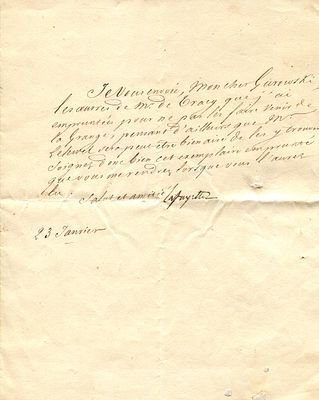 Je vous envoie, Mon cher Gurowski,
les œuvres de Mr. de Tracy que j'ai
empruntées pour ne pas les faire venir de
la Grange, pensant d'ailleurs que Mr.
Lelewel sera peut être bien aise de les y trouver
Soignez donc bien cet exemplaire emprunté
que vous me rendrez lorsque vous l'aurez
lu.
Salut et amitié Lafayette
23 Janvier